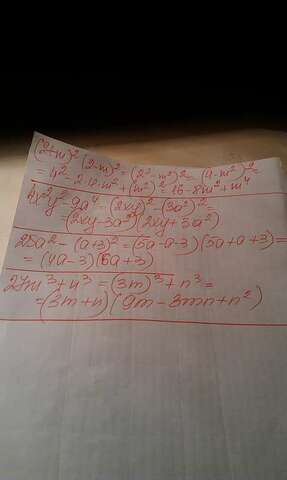 (2+m)² (2-m)² = (2² - m²)² = (4-m²)² =
= 4² - 2·4·m² + (m²)² = 16 - 8m² + m⁴
4x²y² - 9a⁴ = (2xy)² - (3a²)² =
= (2xy - 3a²)(2xy + 3a²)
25a² - (a+3)² = (5a-a-3)(5a+a+3) =
= (4a-3)(6a+3)
27m³ + n³ = (3m)³ + n³ =
= (3m+n)(9m - 3mn + n²)